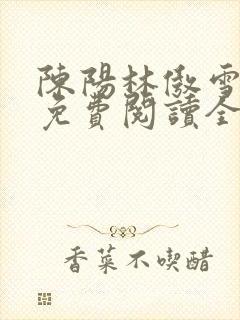 陳陽林傲雪
免費閱讀全
香菜不喫醋